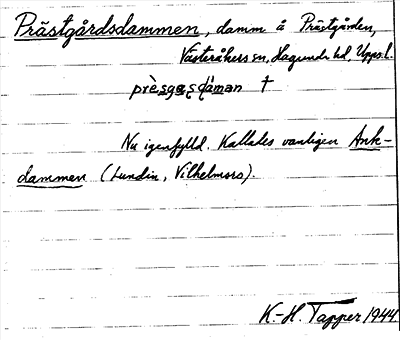 Prästgårdsdammen, damm å Prästgården,
Västeråkers sn, Hagunda hd, Upps. l.
prèsgạṣdámạn †
Nu igenfylld. Kallades vanligen Ank-
dammen (Lundin, Vilhelmsro).
K.-H. Tapper 1944